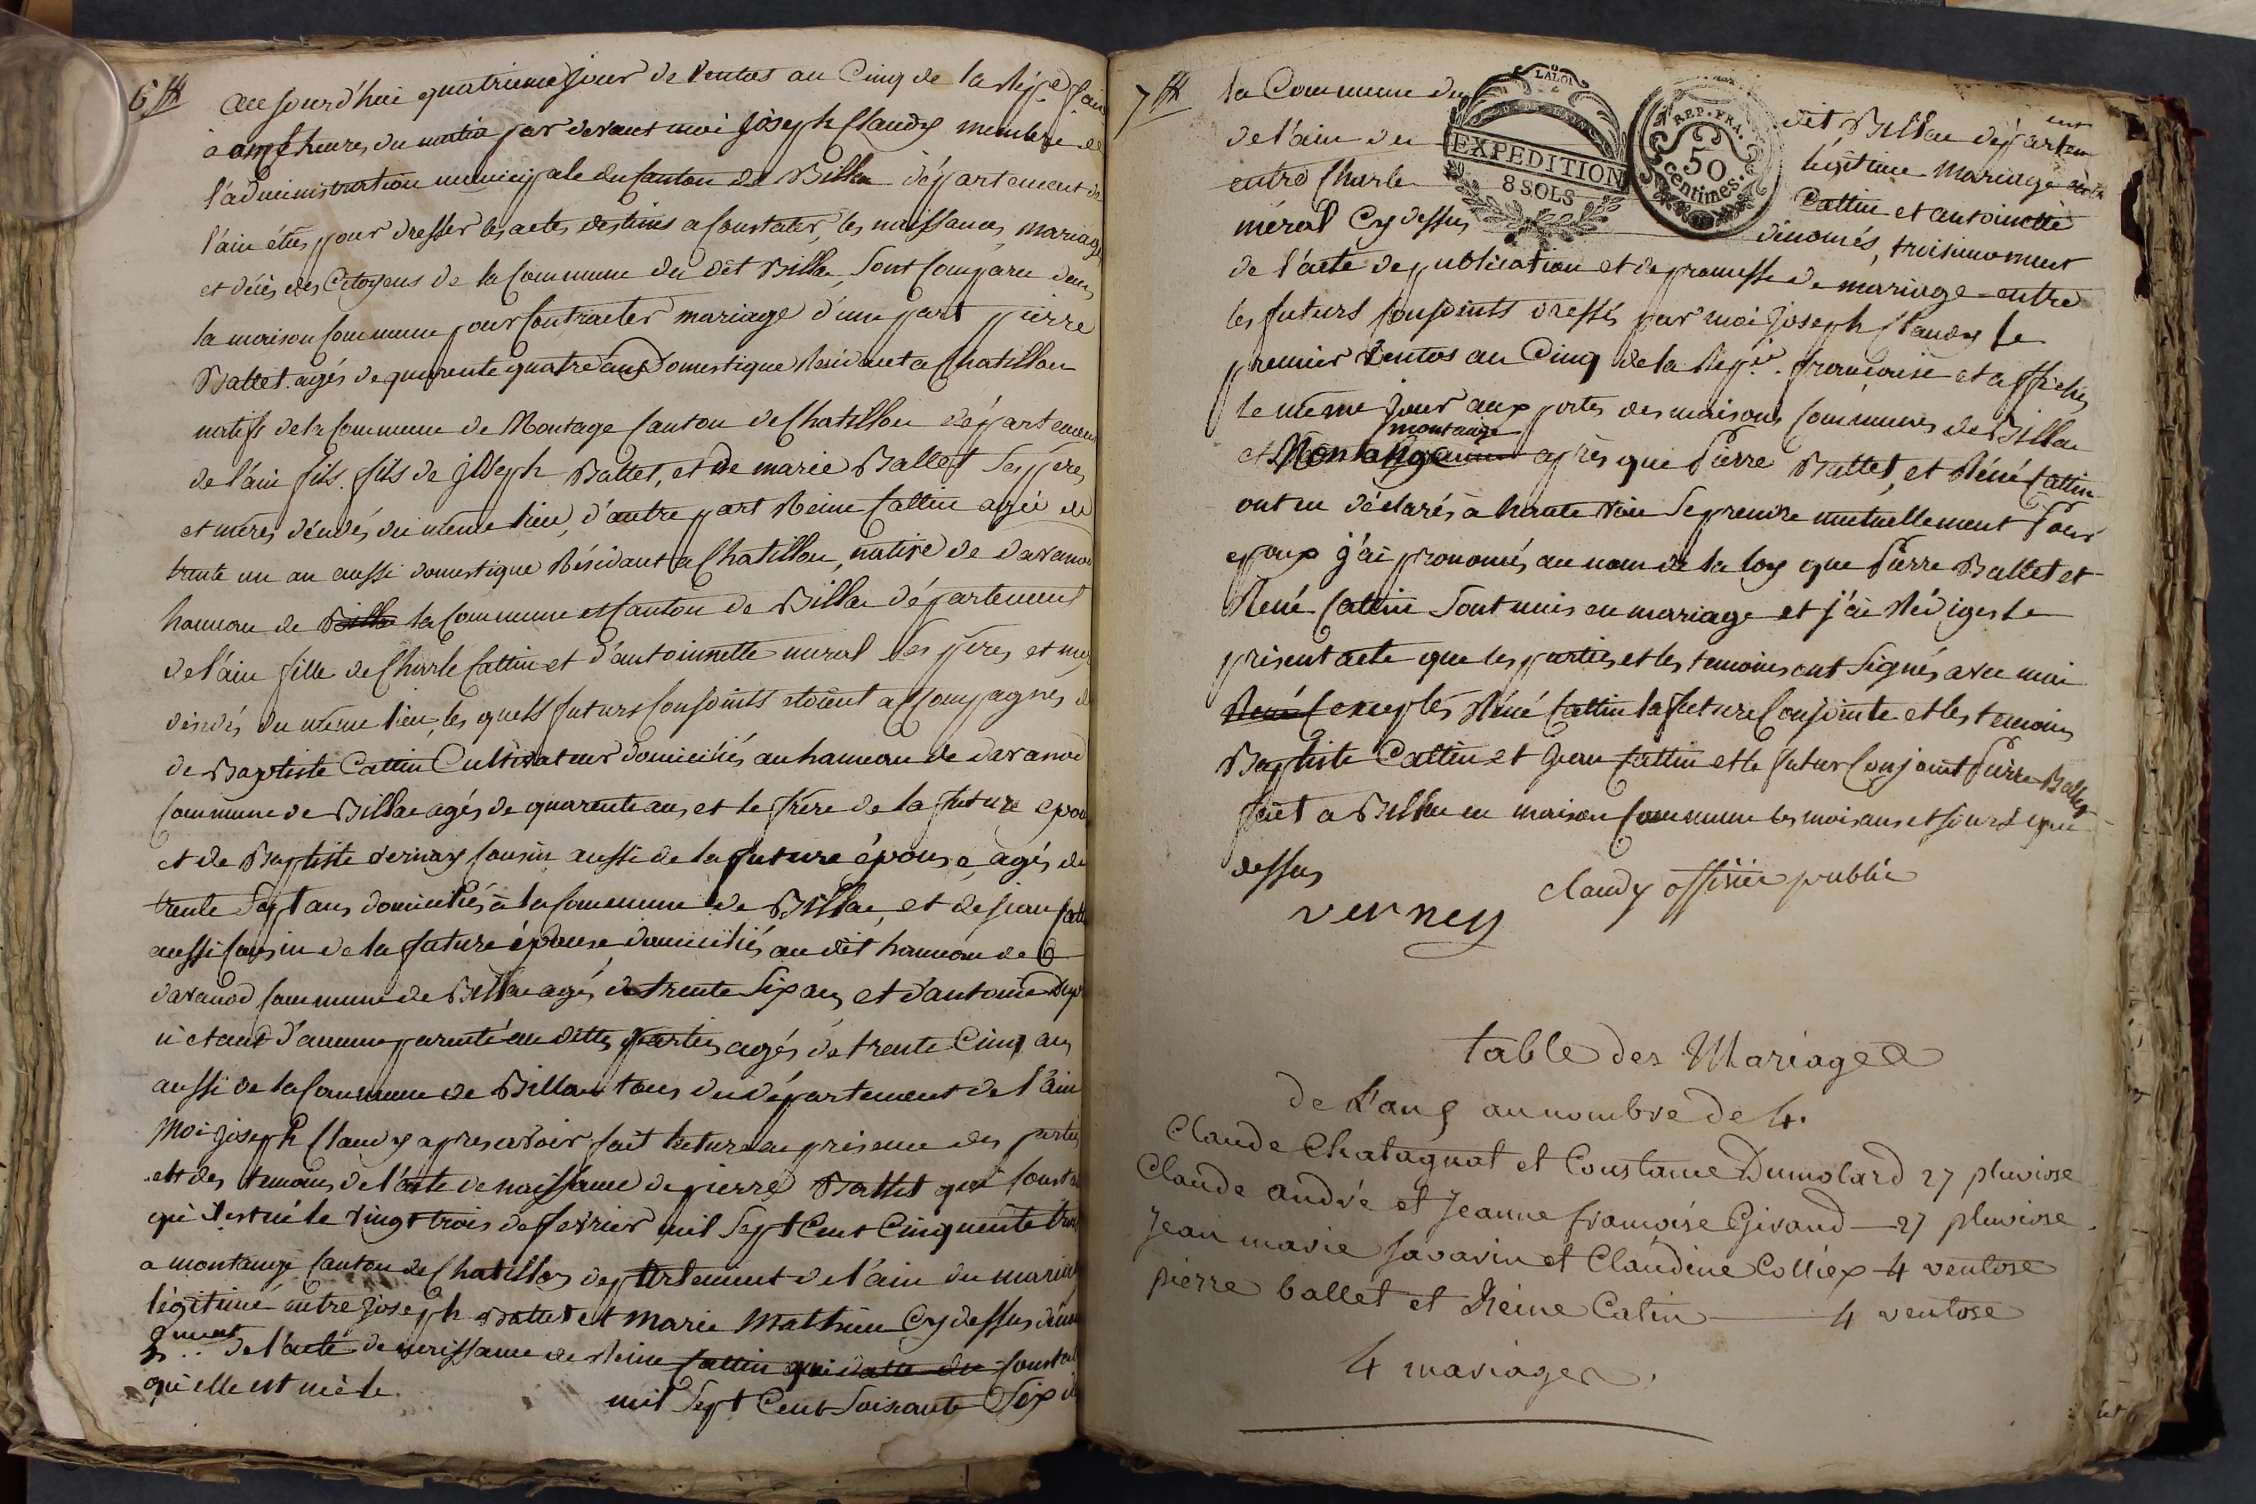 6
aujourd'hui quatrieme jour de Ventos an Cinq de la Rép.e
à onze heures du matin par devant moi joseph Claudy membre de
l'administration municipale du Canton de Billa département de
l'ain élus pour dresser les actes destinés a Constater, les naissances, mariages
et décès des Citoyens de la Commune du dit Billa, sont Comparu dans
la maison Commune pour Contracter mariage d'une part pierre
Ballet agés de quarente quatre ans Domestique Résidant a Chatillon
natifs de la Commune de Montage Canton de Chatillon département
de l'ain fils. fils de joseph Ballet, et de marie Ballet ses pères
et mères du même lieu, d'autre part Reine Cattin agée de
trente un an aussi domestique Résidant a Chatillon, native de davanod
hameau de Billa la Commune et Canton de Billa département
de l'ain fille de Charle Cattin et d'antoinnette meral ses pères et
du même lieu, les quells futurs Conjoints étoient accompagnés de
de Baptiste Cattin Cultivateur domiciliés au hameau de davanod
Commune de Billa agés de quarente ans et le frère de la future
et de Baptiste vernay Cousin aussi de la future épouse, agés de
trente sept ans domiciliés à la Commune de Billa, et de jean
aussi Cousin de la future épouse domiciliés au dit hameau de
davanod Commune de Billa agés de trente six ans et d'antoine
n'etant d'aucune parenté au dittes parties agés de trente Cinq ans
aussi de la Commune de Billa tous du département de l'ain
Moi joseph Claudy apres avoir fait lecture en présence des parties
et des temoins de l'acte de naissance de pierre Ballet qui
qu'il est né le vingt trois de fevrier mil sept Cent Cinquente
a montange Canton de Chatillon département de l'ain du mariage
légitime entre joseph Ballet et Marie Mathieu Cy dessus
de l'acte de naissance de Reine Cattin qui datte du
qu'elle est née le mil sept Cent soixante six
7
la Commune du dit Billa département
de l'ain du légitime mariage
entre Charle Cattin et antoinette
méral Cy dessus dénomés, troisimement
LA LOI
EXPEDITION
8 SOLS
REP. FRA.
50
centimes.
de l'acte de publication et de promesse de mariage entre
les futurs Conjoints dressés par moi joseph Claudy le
premier Ventos an Cinq de la Rép.e françoise et affiches
le même jour aux portes des maisons Communes de Billa
montange
et Montange après que Pierre Ballet, et Réné Cattin
ont eu déclarés à haute voie se prendre mutuellement Pour
epoux j'ai prononcés au nom de la loy que Pierre Ballet et
René Cattin sont unis en mariage et j'ai Rédiges le
présent acte que les parties et les temoins ont signés avec moi
René exceptés Réné Cattin la future Conjointe et les temoins
Baptiste Cattin et Jean Cattin et le futur Conjoint Pierre Ballet
fait a Billa en maison Commune les mois ans et jours que
dessus
claudy officier public
verney
table des Mariages
de L'an 5 au nombre de 4.
Claude Chatagnat et Constance Dumolard 27 pluviose
Claude andré et Jeanne françoise Girand — 27 pluviose.
Jean marie Savarin et Claudine Colliex — 4 ventose
pierre ballet et Reine Catin — 4 ventose
4 mariages.